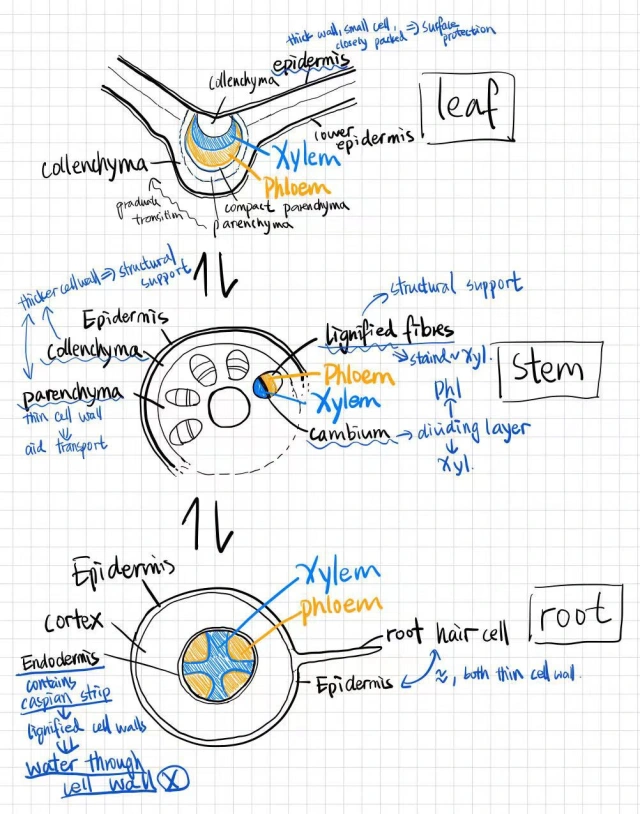 thick wall, small cell,
closely packed ⇒ surface
protection
epidermis
collenchyma
leaf
lower
epidermis
Xylem
collenchyma
Phloem
compact parenchyma
parenchyma
gradual
transition
thicker cell wall ⇒ structural
support
structural support
Epidermis
Lignified fibres
collenchyma
Phloem
Stem
Phl
parenchyma
Xylem
thin cell wall
cambium → dividing layer
aid transport
Xyl.
Epidermis
Xylem
phloem
cortex
root
root hair cell
Endodermis
Epidermis
≈, both thin cell wall.
contains
caspian strip
lignified cell walls
water through
cell wall X